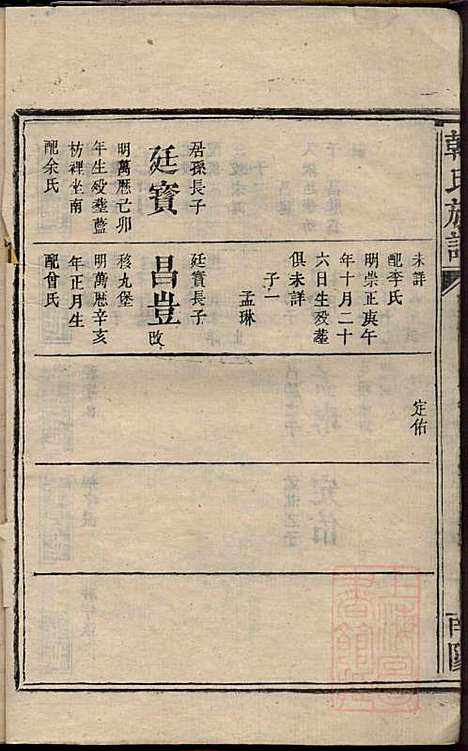 韓氏族譜
君孫長子
廷寳
明萬歷己卯
年生殁塟藍
枋裡坐南
配余氏
未詳
配李氏
明崇正庚午
年十月二十
六日生殁塟
俱未詳
子一
孟琳
廷寳長子
昌豈
改
移丸堡
明萬歷辛亥
年正月生
配曾氏
定佑
南陽